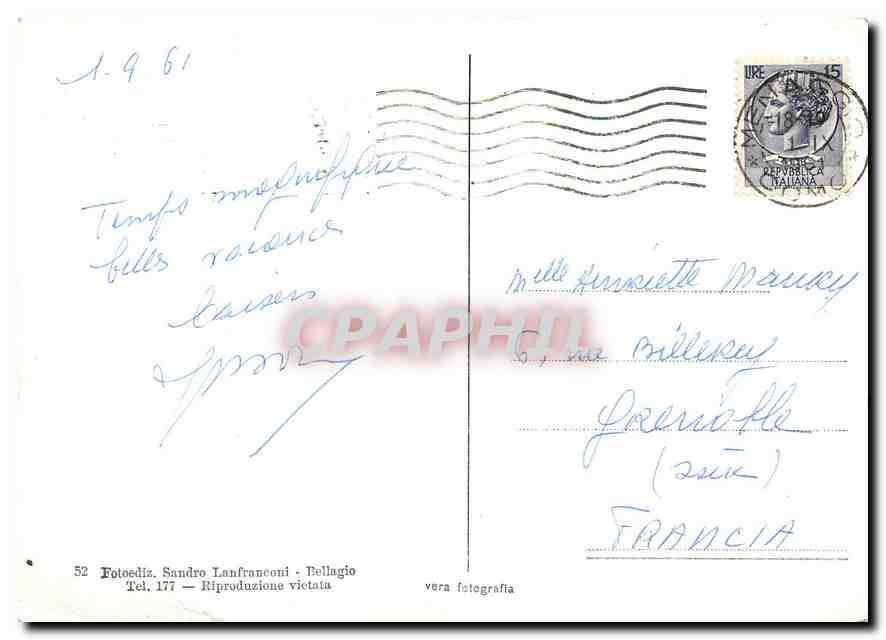 1-9 61
Temps magnifique
belles vacances
baisers
LIRE 15
MENAGGIO
1 IX
REPVBBLICA
ITALIANA
Melle Henriette
6, rue
Grenoble
(Isère)
FRANCIA
CPAPHIL
52 Fotoediz. Sandro Lanfranconi - Bellagio
Tel. 177 — Riproduzione vietata
vera fotografia